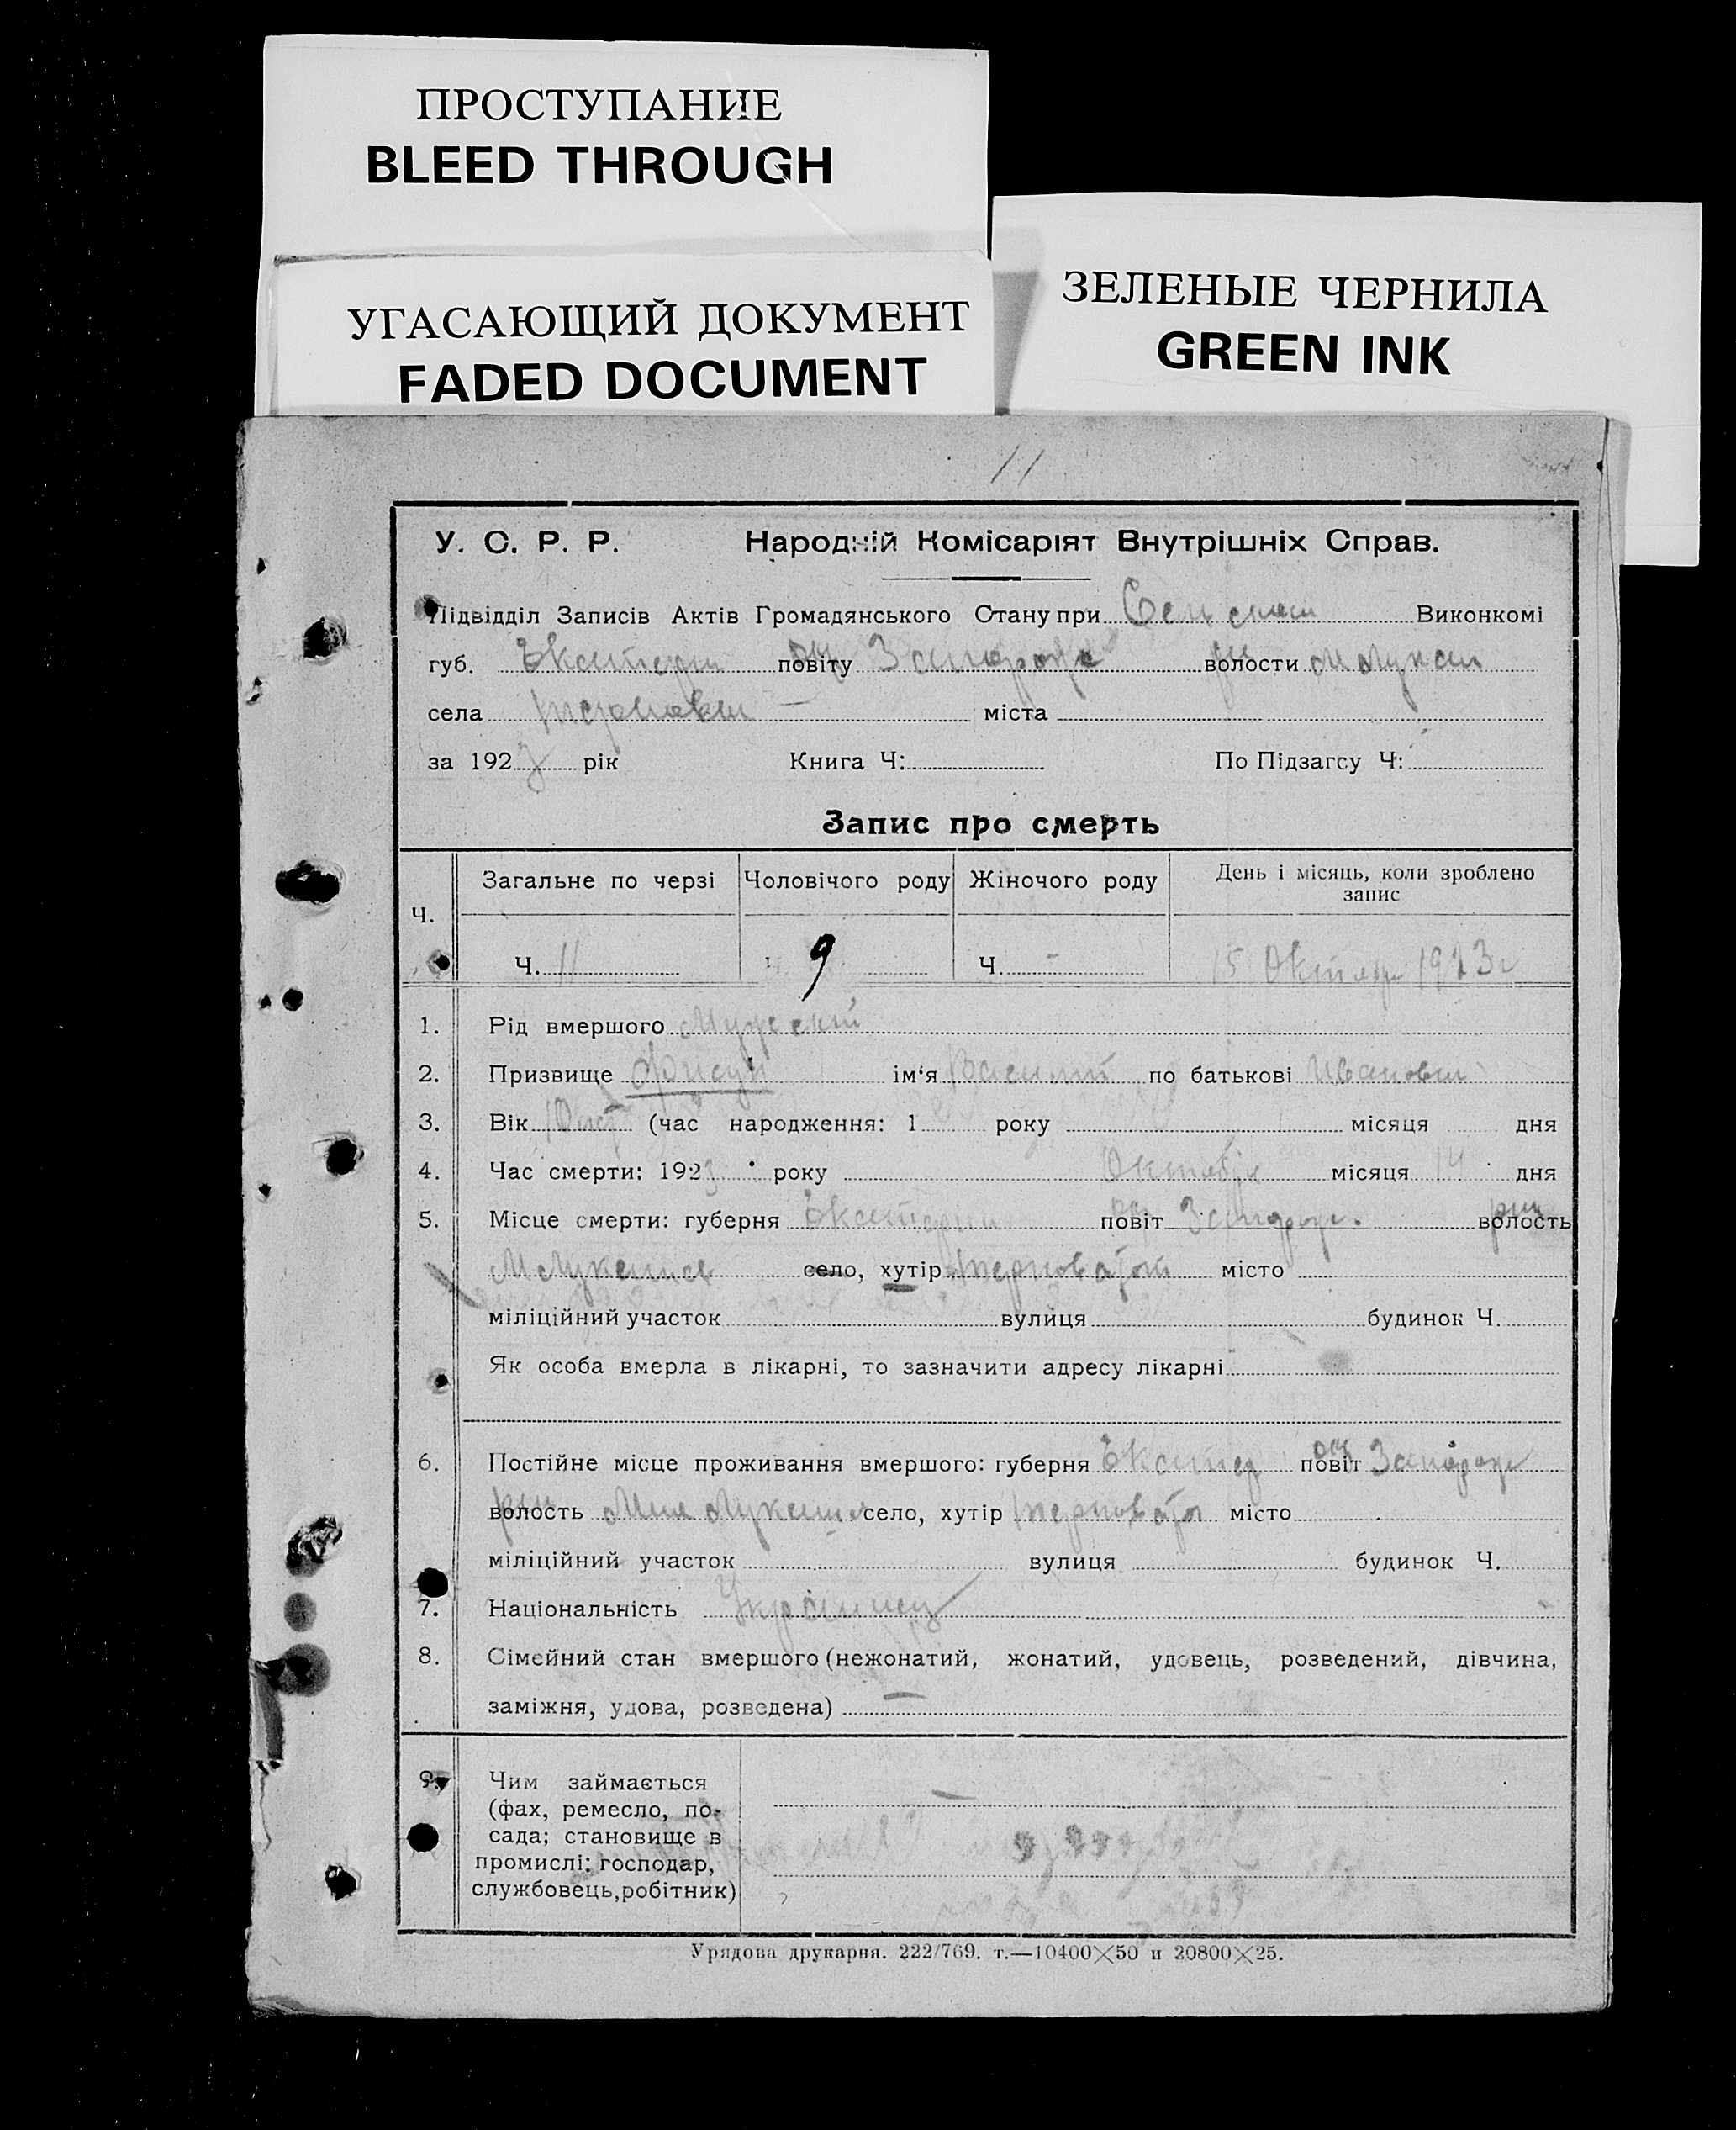 ПРОСТУПАНИЕ
BLEED THROUGH
УГАСАЮЩИЙ ДОКУМЕНТ
FADED DOCUMENT
ЗЕЛЕНЫЕ ЧЕРНИЛА
GREEN INK
11
У. С. Р. Р. Народній Комісаріят Внутрішніх Справ.
Підвідділ Записів Актів Громадянського Стану при Виконкомі
губ. Екатери повіту Запорож волости
села міста
за 1923 рік Книга Ч: По Підзагсу Ч:
Запис про смерть
Ч. Загальне по черзі Чоловічого роду Жіночого роду День і місяць, коли зроблено запис
Ч. 11 Ч. 9 Ч. - 15 Октября 1923 г
1. Рід вмершого Мужской
2. Призвище ім‘я Василий по батькові Иванович
3. Вік (час народження: 1 року місяця дня
4. Час смерти: 1923 року Октября місяця 14 дня
5. Місце смерти: губерня Екатерин повіт Запорож. волость
село, хутір місто
міліційний участок вулиця будинок Ч.
Як особа вмерла в лікарні, то зазначити адресу лікарні
6. Постійне місце проживання вмершого: губерня Екатер повіт Запорож
волость село, хутір місто
міліційний участок вулиця будинок Ч.
7. Національність Украинец
8. Сімейний стан вмершого (нежонатий, жонатий, удовець, розведений, дівчина,
заміжня, удова, розведена) —
9. Чим займається —
(фах, ремесло, по-
сада; становище в
промислі: господар,
службовець, робітник)
Урядова друкарня. 222/769. т.—10400×50 и 20800×25.